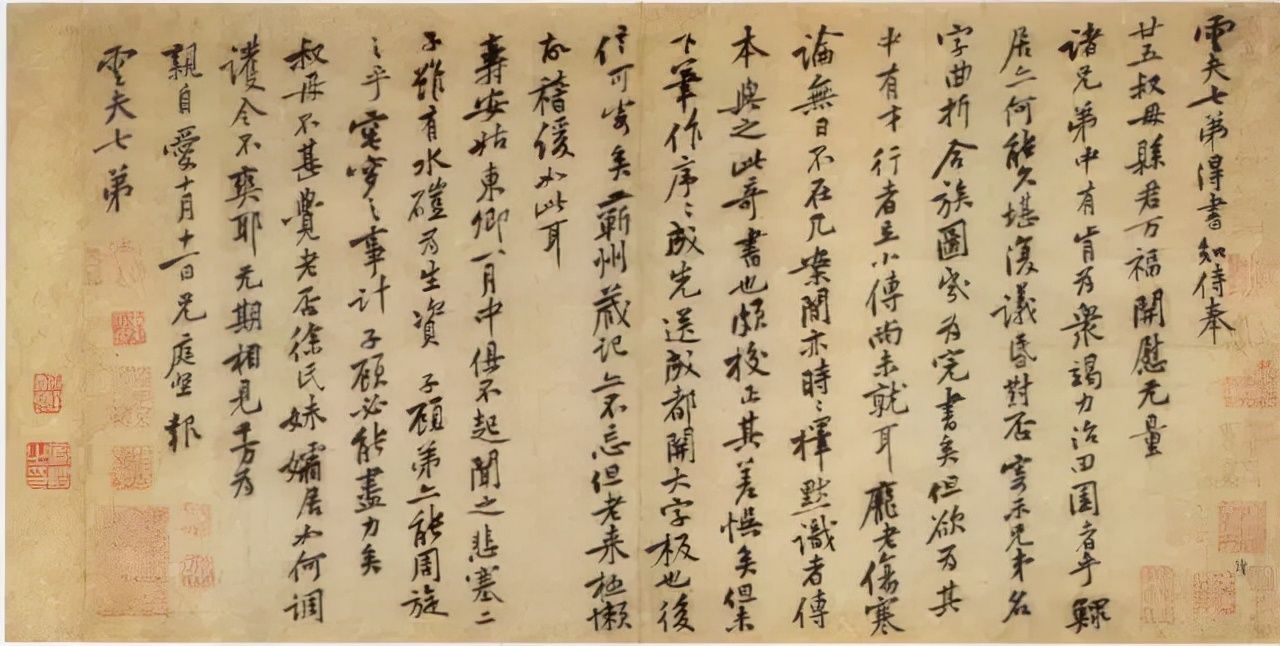 雲夫七弟得書知侍奉
廿五叔母縣君万福開慰无量
諸兄弟中有肯為衆竭力治田園者乎鰥
居亦何能久堪復議昏對否寄示兄弟名
字曲折合族圖幾為完書矣但欲為其
中有才行者立小傳尚未就耳龐老傷寒
論無日不在几案間亦時〻擇默識者傳
本與之此奇書也頗校正其差悞矣但未
下筆作序〻成先送成都開大字板也後
信可寄矣蘄州藏記亦不忘但老来極懶
故稽緩如此耳
壽安姑東卿一月中俱不起聞之悲塞二
子雖有水磑為生資子顧弟亦能周旋
之乎窀穸之事計子顧必能盡力矣
叔母不甚覺老否徐氏妹孀居如何調
護令不爽耶无期相見千萬為
親自愛十月十一日兄庭堅報
雲夫七弟